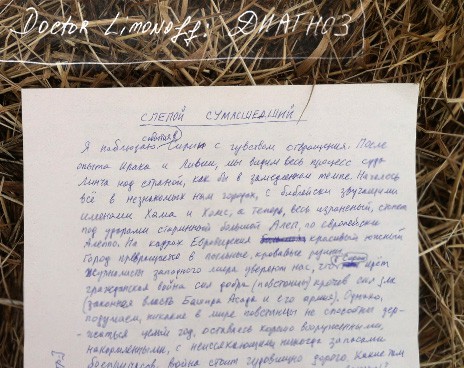 Doctor Limonoff: ДИАГНОЗ
СЛЕПОЙ СУМАСШЕДШИЙ
статья
Я наблюдаю Сирию с чувством отвращения. После
опыта Ирака и Ливии, мы видим весь процесс суда
Линча над страной, как бы в замедленном темпе. Началось
всё в незнакомых нам городах, с библейски звучащими
именами Хама и Хомс, а теперь, весь израненый,
под ударами старинный большой Алеп, по европейски
Алеппо. На кадрах Евроньюса красивый южный
город превращено в поганые, кровавые руины.
Журналисты западного мира уверяют нас, что в Сирии идёт
гражданская война сил добра (повстанцы) против сил зла
(законная власть Башара Асада и его армия). Однако,
подумаем, никакие в мире повстанцы не способны дер-
жаться целый год, оставаясь хорошо вооруженными,
накормленными, с неиссякающими никогда запасами
боеприпасов. Война стоит чудовищно дорого. Какие там